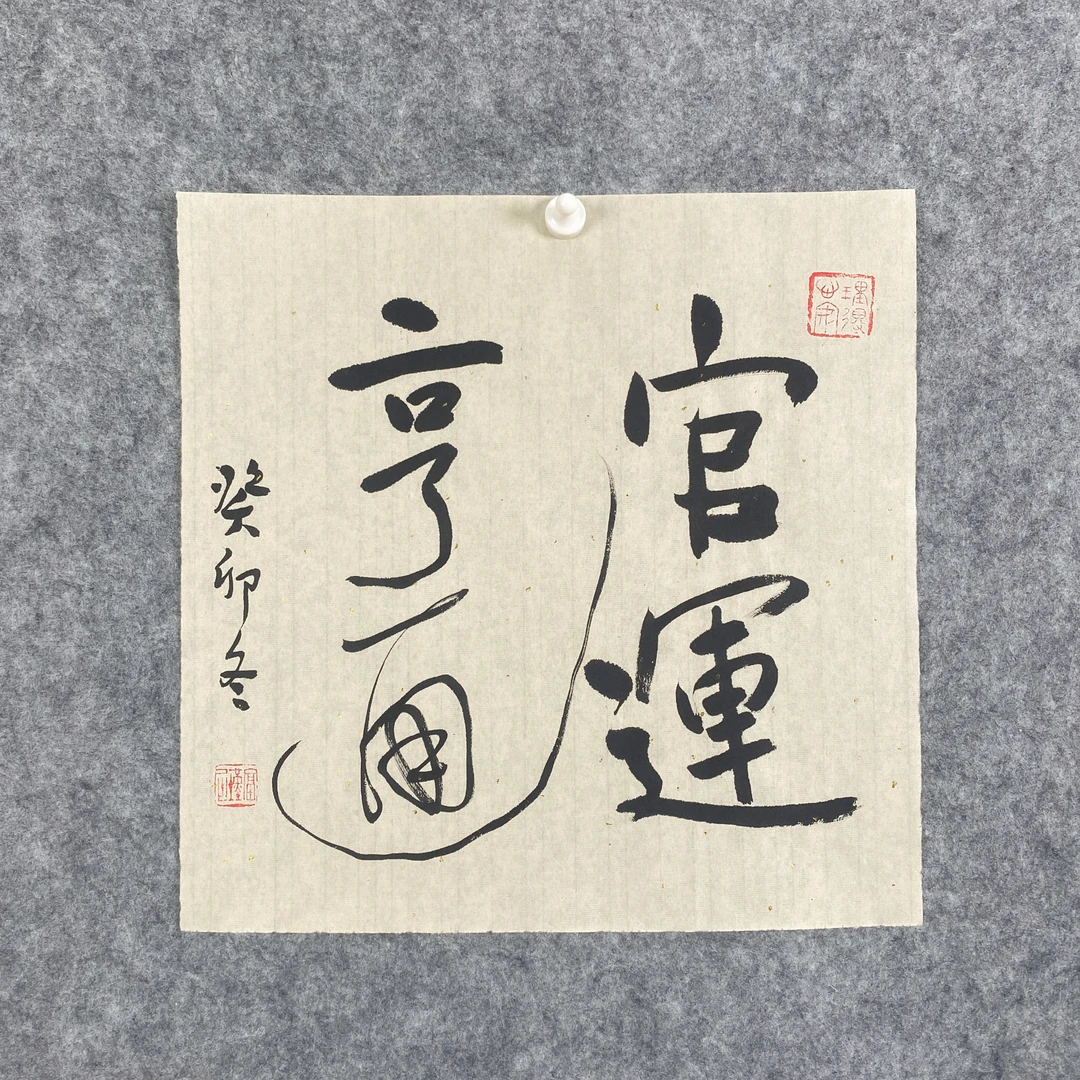 官運
亨通
癸卯冬